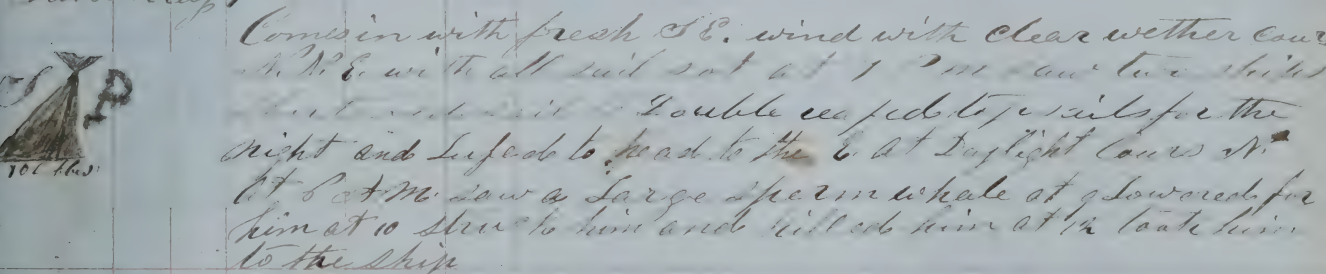 Comes in with fresh SE. wind with clear wether Cours
N.N.E. with all sail sat at 1 Pm saw two ships
Double reafed topsails for the
night and Lufed to head to the E. At Daylight Cours N
P
at 6 AM saw a Large Sperm whale at 9 Lowered for
him at 10 Struck to him and killed him at 12 took him
to the ship